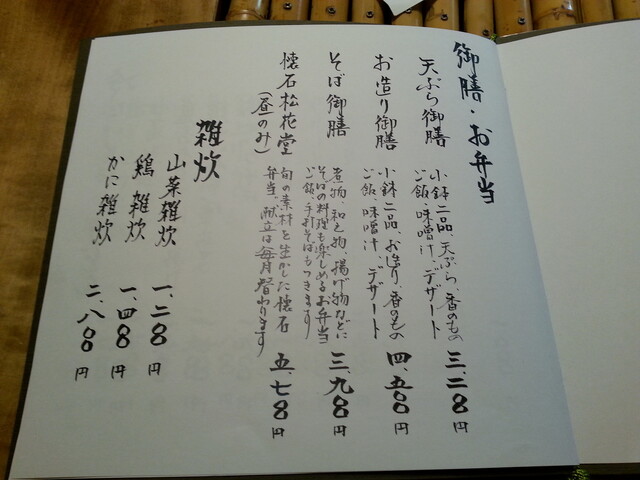 御膳・お弁当
天ぷら御膳
小鉢二品、天ぷら、香のもの
ご飯、味噌汁、デザート
三、二〇〇円
お造り御膳
小鉢二品、お造り、香のもの
ご飯、味噌汁、デザート
四、五〇〇円
そば御膳
煮物、和え物、揚げ物などに
そばの料理も楽しめるお弁当
ご飯、手打そばもつきます
三、九〇〇円
懐石松花堂
(昼のみ)
旬の素材を生かした懐石
弁当、献立は毎月替わります
五、七〇〇円
雑炊
山菜雑炊
一、二〇〇円
鶏雑炊
一、四〇〇円
かに雑炊
二、八〇〇円